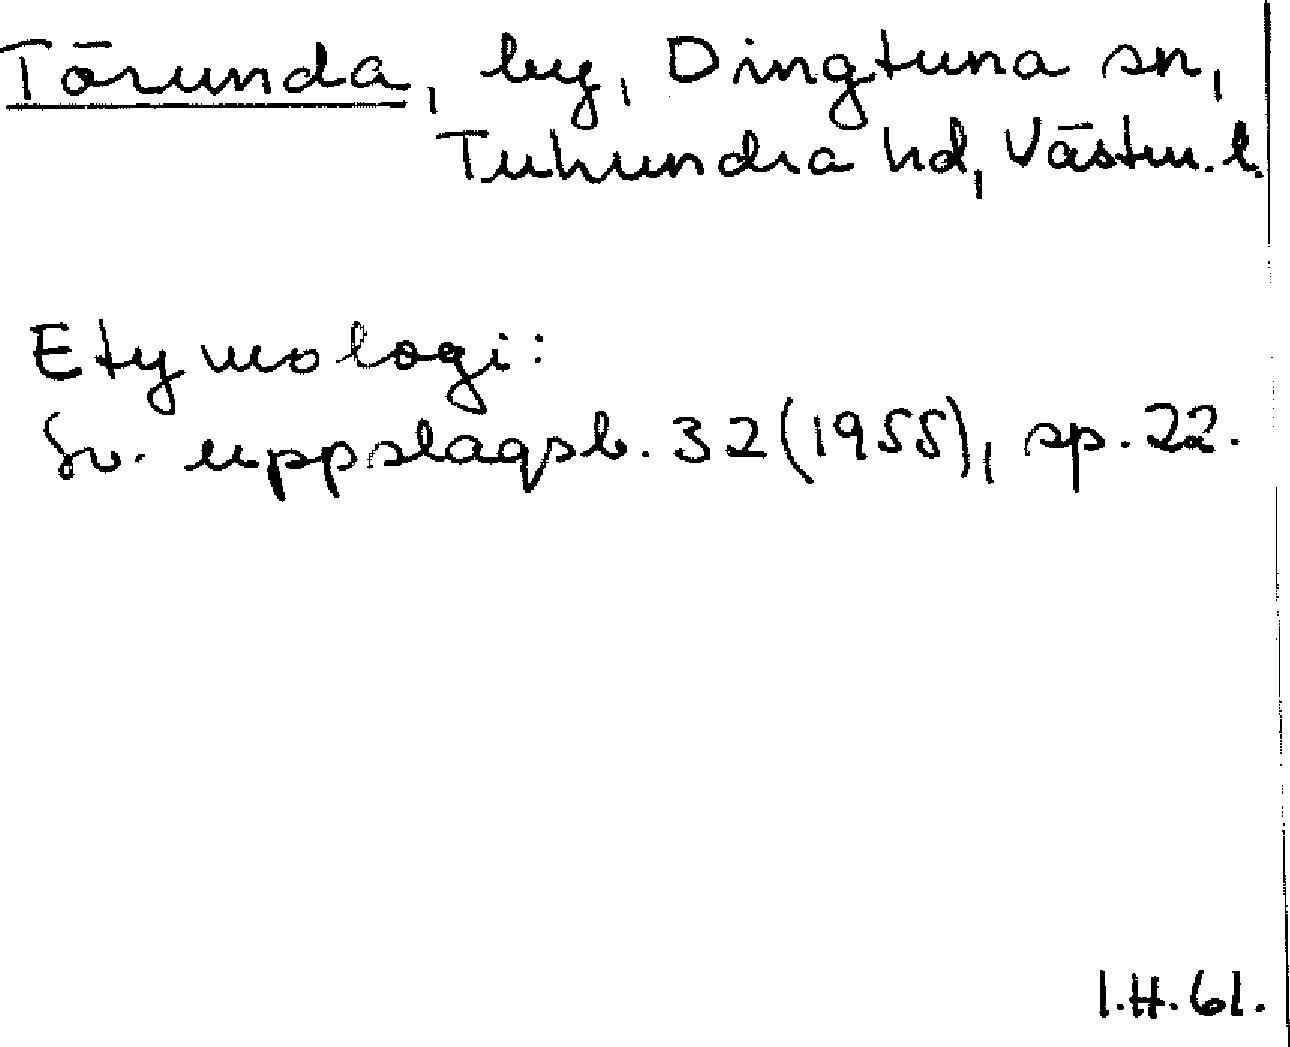 Törunda, by, Dingtuna sn,
Tuhundra hd, Västm. l.
Etymologi:
Sv. uppslagsb. 32 (1955), sp. 22.
I.H. 61.